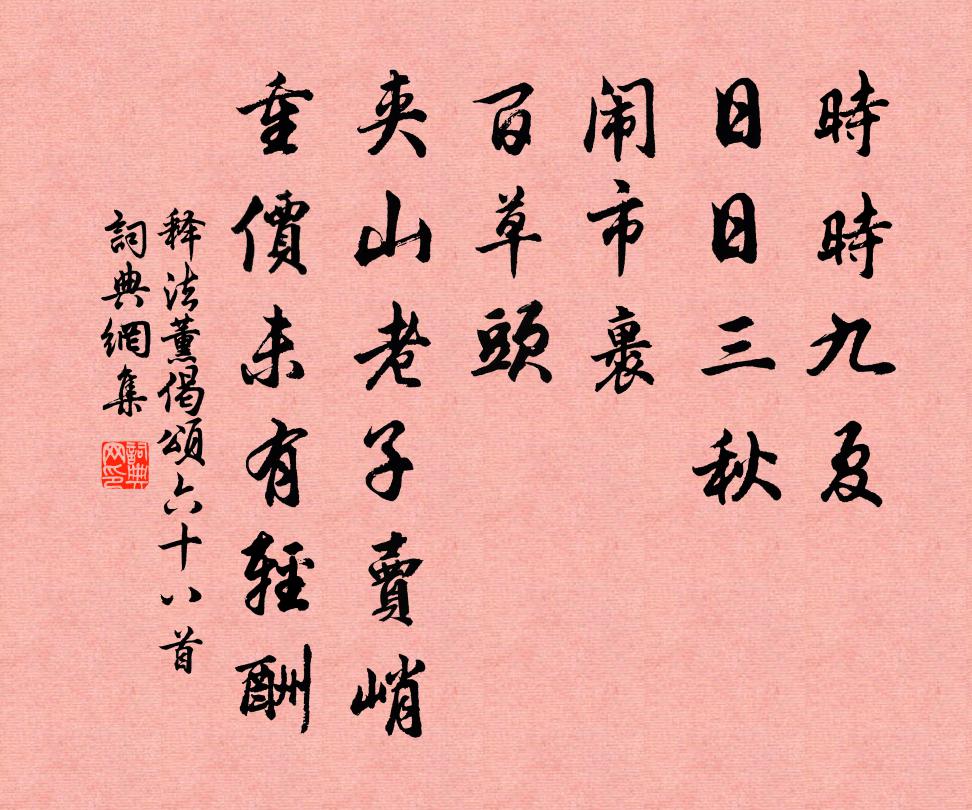 時時九夏
日日三秋
闹市裹
百草頭
夾山老子賣峭
重價未有輕酬
释法薰偈頌六十八首
詞典網集
詞典网印